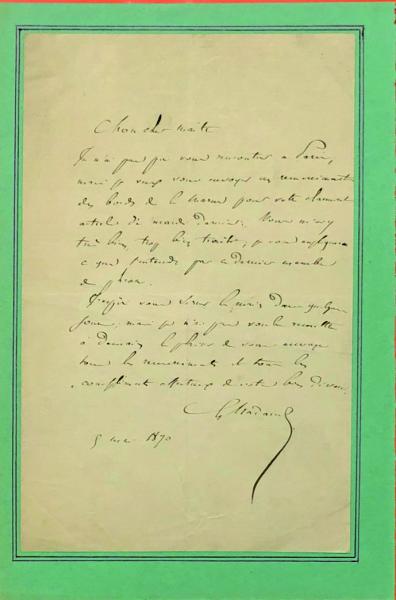 Mon cher maître
Je n'ai pas pu vous rencontrer à Paris,
mais je veux vous envoyer un remerciement
des bords de la pour votre charmant
article de mardi dernier. Vous m'avez
très bien, trop bien traité, je vous expliquerai
ce que j'entends par ce dernier membre
de phrase.
J'espère vous serrer la main dans quelques
jours, mais je n'ai pas voulu remettre
à demain le plaisir de vous envoyer
tous les remerciements et tous les
compliments affectueux de votre bien dévoué
5 mai 1870